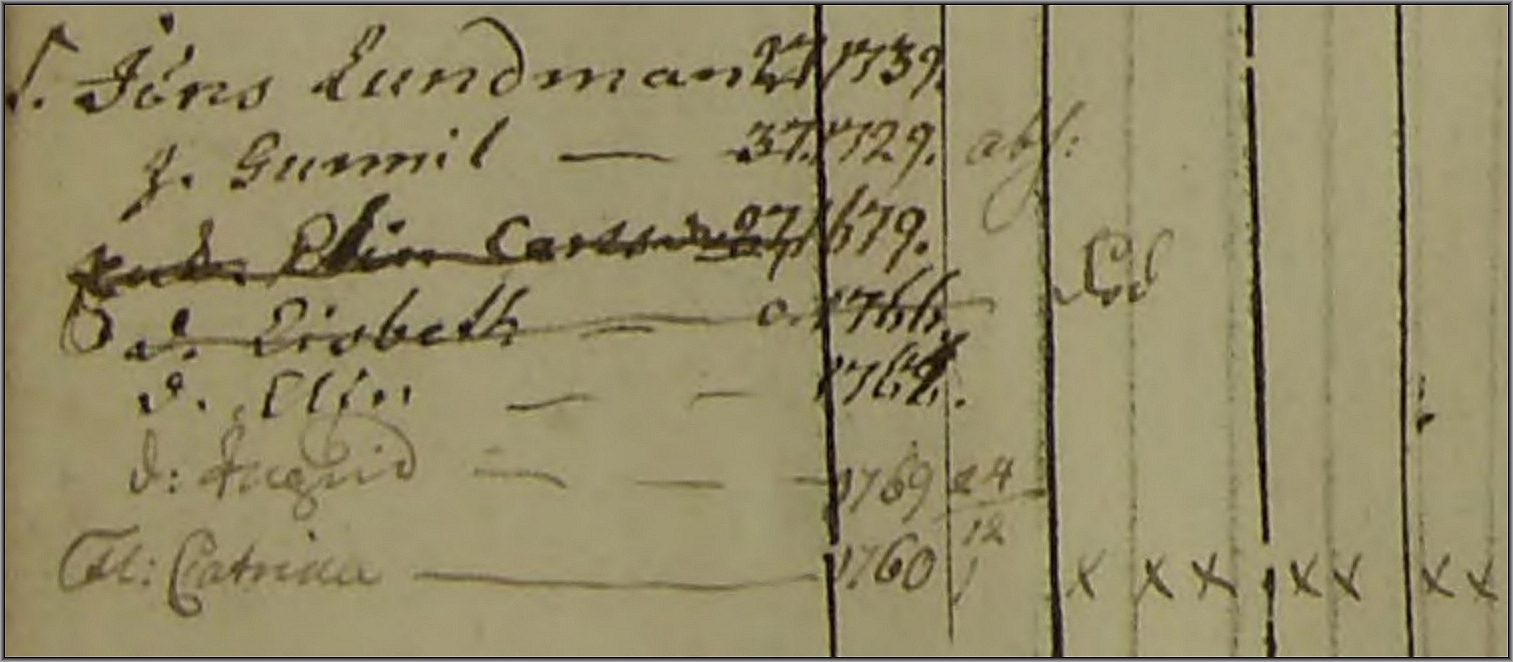 S. Jöns Lundman 27. 1739.
h. Gunnil — 37. 1729. abs:
Enk. Elin Carlsdr 87. 1679.
d. Lisbeth — 0. 1766. död
d. Elin — — 1767.
d: Ingrid — — 1769 24/12
Fl: Catrina — 1760 x x x x x x x